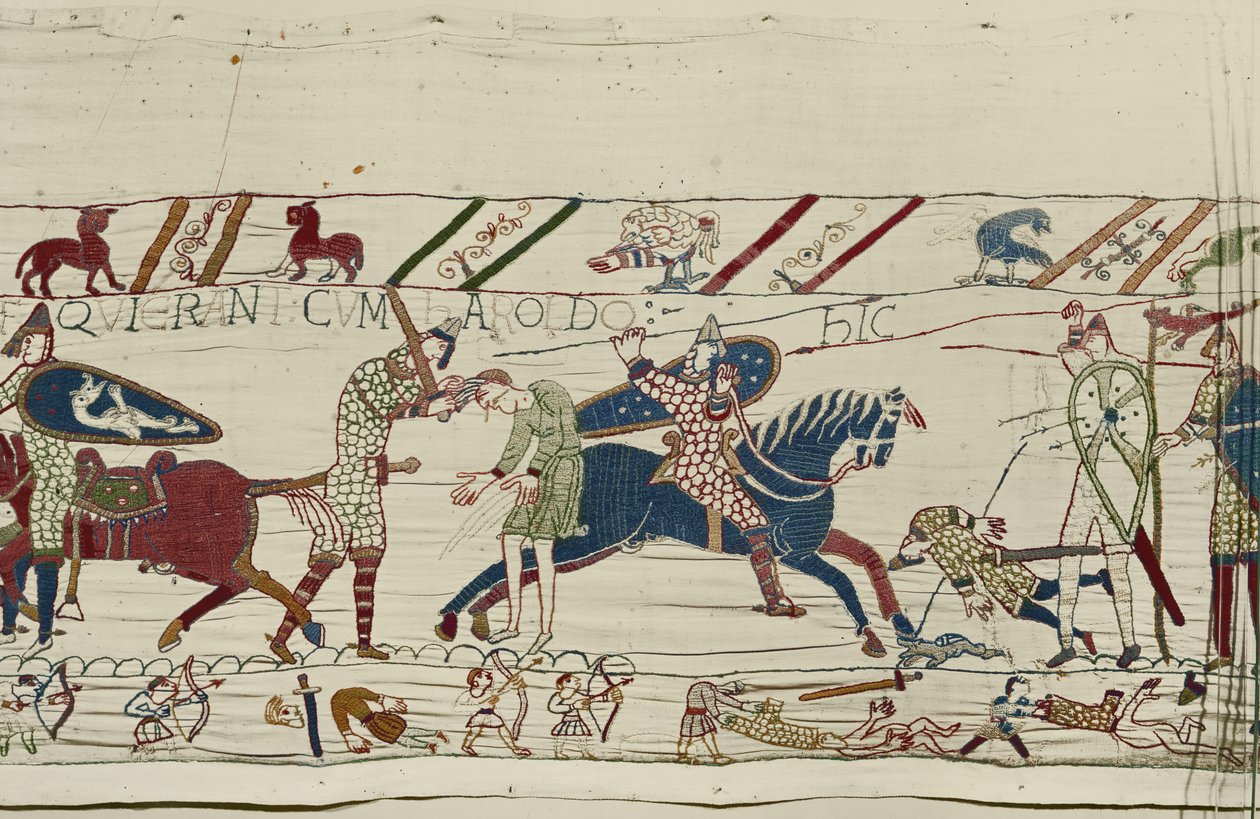 QVI ERANT : CVM hAROLDO : hIC